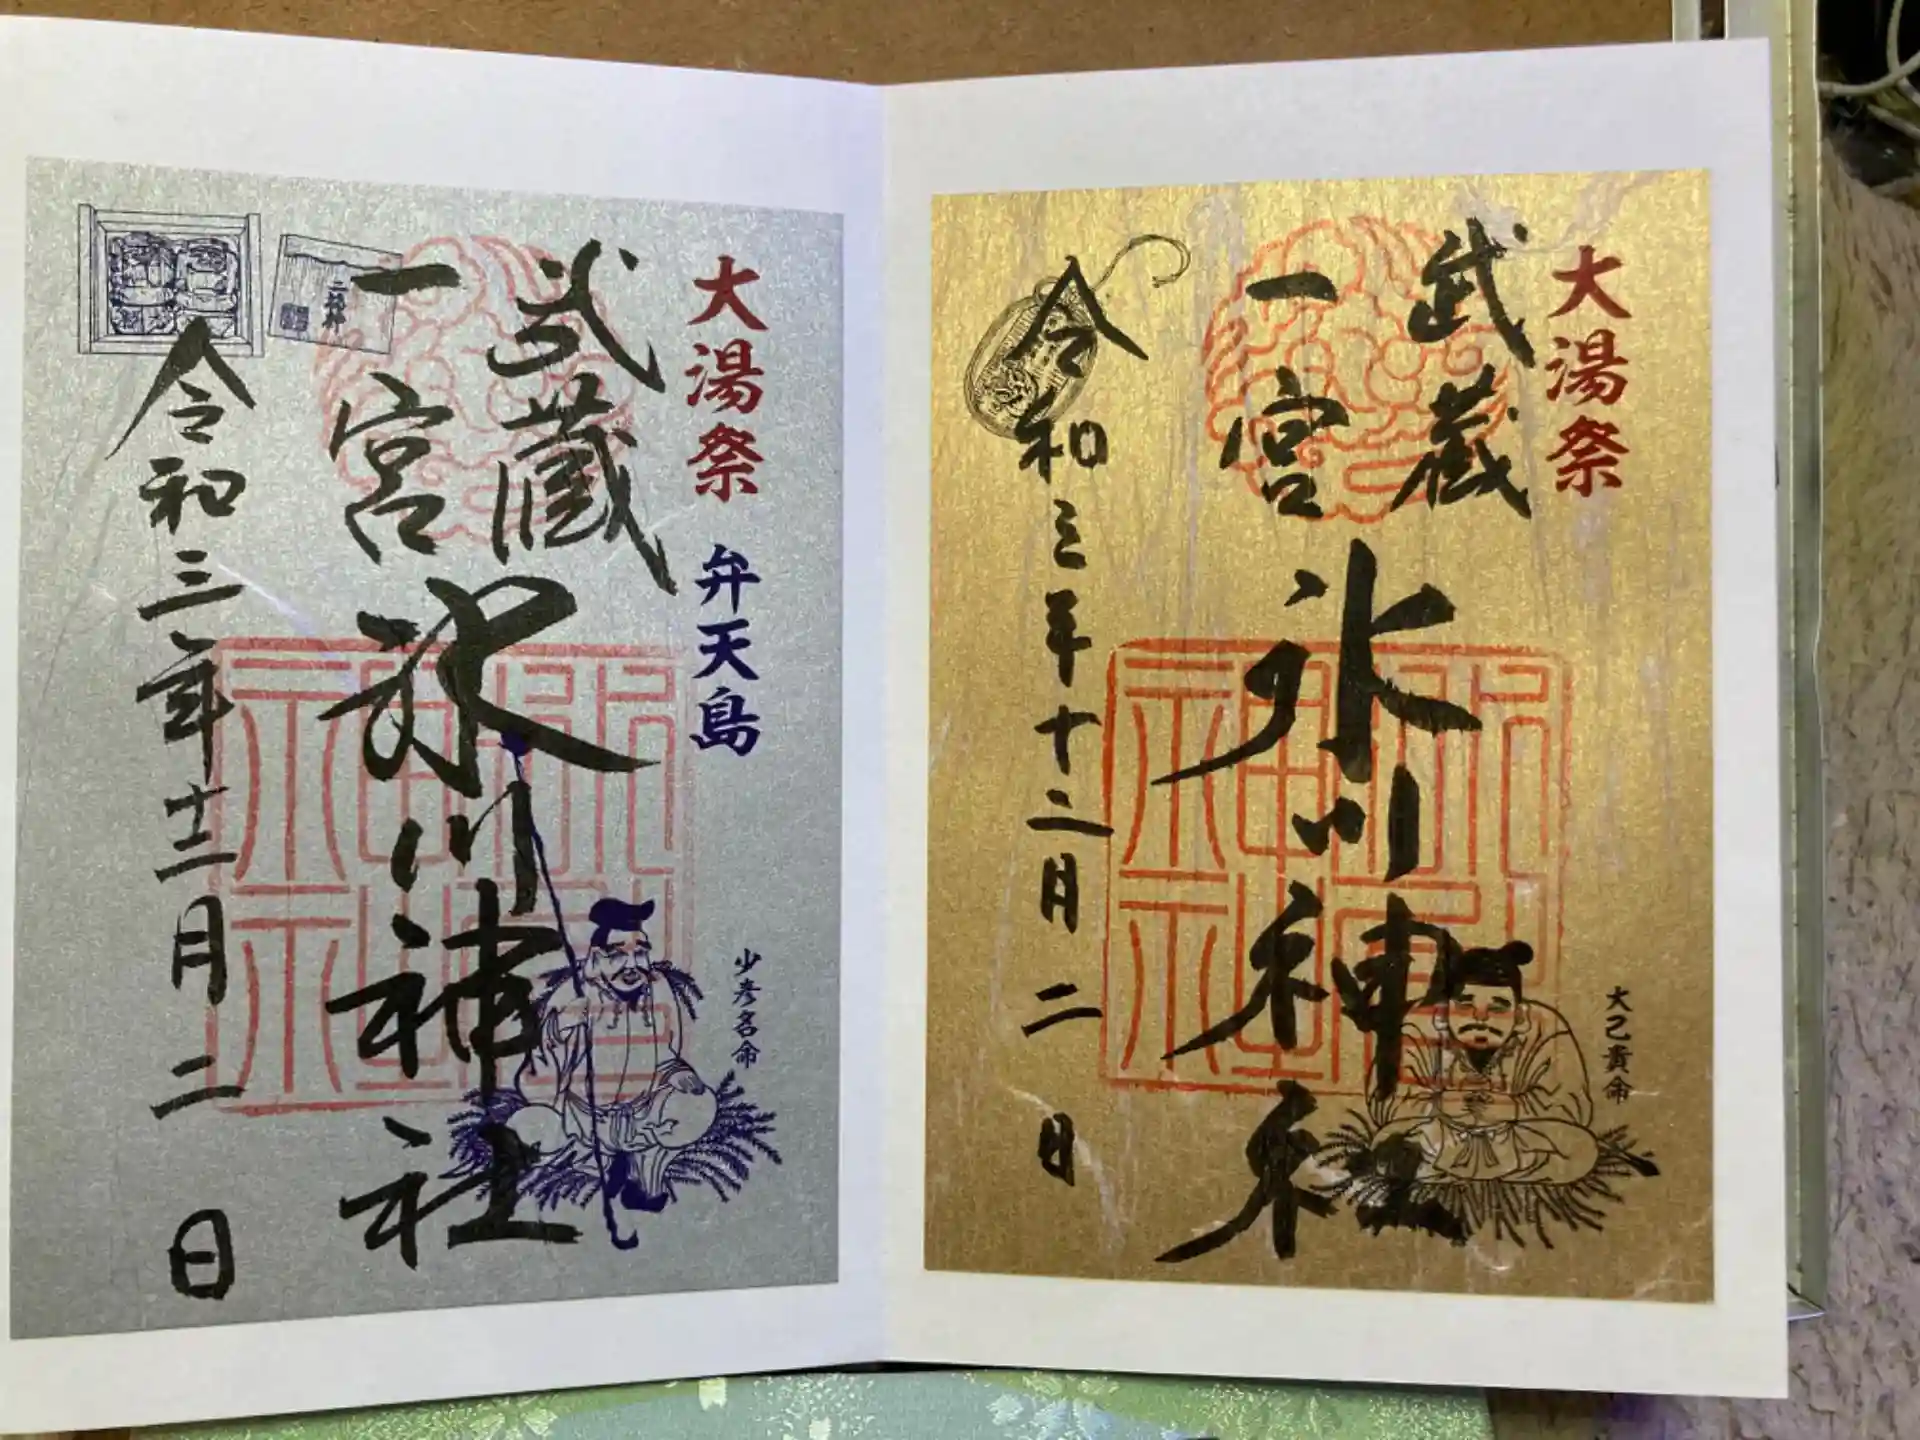 大湯祭
武蔵
一宮
氷川神社
大己貴命
令和三年十二月二日
大湯祭 弁天島
武蔵
一宮
氷川神社
少彦名命
令和三年十二月二日